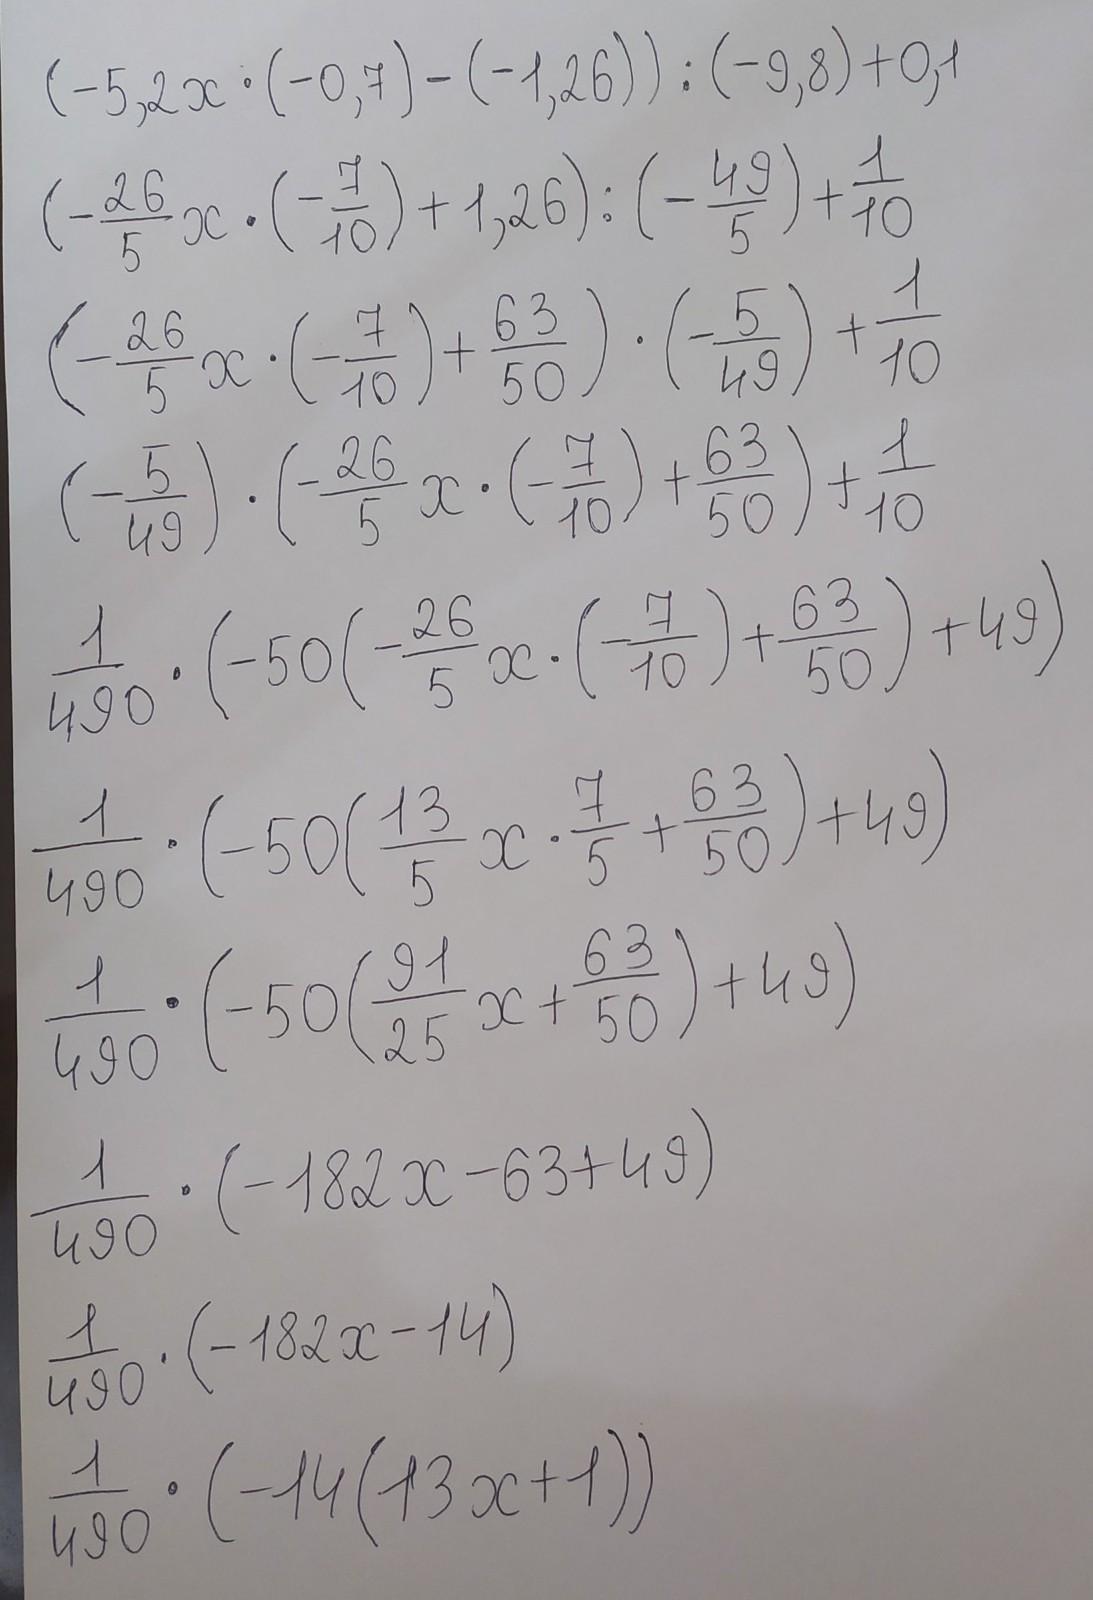 (-5,2x·(-0,7)-(-1,26)):(-9,8)+0,1
(-26/5x·(-7/10)+1,26):(-49/5)+1/10
(-26/5x·(-7/10)+63/50)·(-5/49)+1/10
(-5/49)·(-26/5x·(-7/10)+63/50)+1/10
1/490·(-50(-26/5x·(-7/10)+63/50)+49)
1/490·(-50(13/5x·7/5+63/50)+49)
1/490·(-50(91/25x+63/50)+49)
1/490·(-182x-63+49)
1/490·(-182x-14)
1/490·(-14(13x+1))